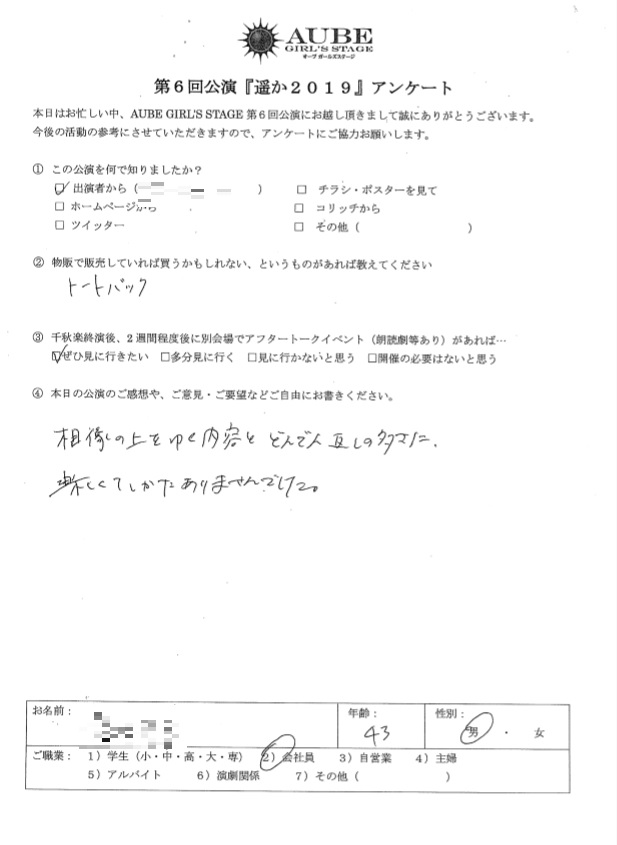 AUBE
GIRL'S STAGE
オーブ ガールズステージ
第6回公演『遥か2019』アンケート
本日はお忙しい中、AUBE GIRL'S STAGE 第6回公演にお越し頂きまして誠にありがとうございます。
今後の活動の参考にさせていただきますので、アンケートにご協力お願いします。
① この公演を何で知りましたか?
☑ 出演者から( ) □ チラシ・ポスターを見て
□ ホームページから □ コリッチから
□ ツイッター □ その他( )
② 物販で販売していれば買うかもしれない、というものがあれば教えてください
トートバック
③ 千秋楽終演後、2週間程度後に別会場でアフタートークイベント(朗読劇等あり)があれば…
☑ぜひ見に行きたい □多分見に行く □見に行かないと思う □開催の必要はないと思う
④ 本日の公演のご感想や、ご意見・ご要望などご自由にお書きください。
相像しの上をゆく内容とどんでん返しの多さに、
楽しくてしかたありませんでした。
お名前: 年齢: 43 性別: 男 ・ 女
ご職業: 1)学生(小・中・高・大・専) 2)会社員 3)自営業 4)主婦
5)アルバイト 6)演劇関係 7)その他( )